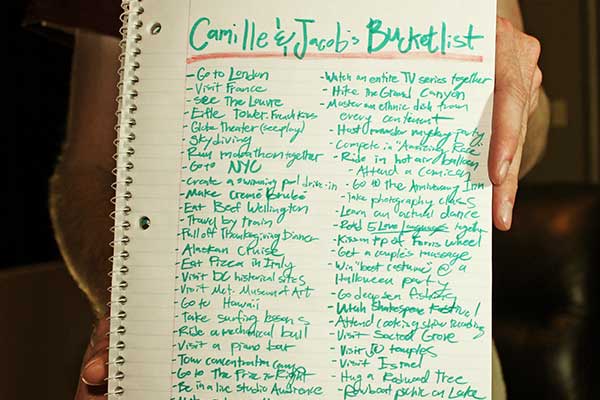 Camille & Jacob's Bucketlist
- Go to London
- Visit France
- See The Louvre
- Eifle Tower French kiss
- Globe Theater (see play)
- Skydiving
- Run marathon together
- Go to NYC
- Create a swimming pool drive-in
- Make Cremé Brulé
- Eat Beef Wellington
- Travel by train
- Pull off Thanksgiving Dinner
- Alaskan Cruise
- Eat Pizza in Italy
- Visit DC historical sites
- Visit Met. Museum of Art
- Go to Hawaii
- Take surfing lessons
- Ride a mechanical bull
- Visit a piano bar
- Tour concentration camp
- Go to The Price is Right
- Be in a live Studio Audience
- Watch an entire TV series together
- Hike The Grand Canyon
- Master an ethnic dish from
every continent
- Host murder mystery party
- Compete in "Amazing Race"
- Ride in hot air balloon
- Attend a comic con
- Go to the Anniversary Inn
- Take photography class
- Learn an actual dance
- Read 5 Love Languages together
- Kiss on top of Ferris Wheel
- Get a couple's massage
- Win "best costume" @ a
Halloween party
- Go deep sea fishing
- Utah Shakespeare Festival!
- Attend cooking show recording
- Visit Sacred Grove
- Visit temples
- Visit Israel
- Hug a Redwood Tree
- Rowboat picnic on Lake